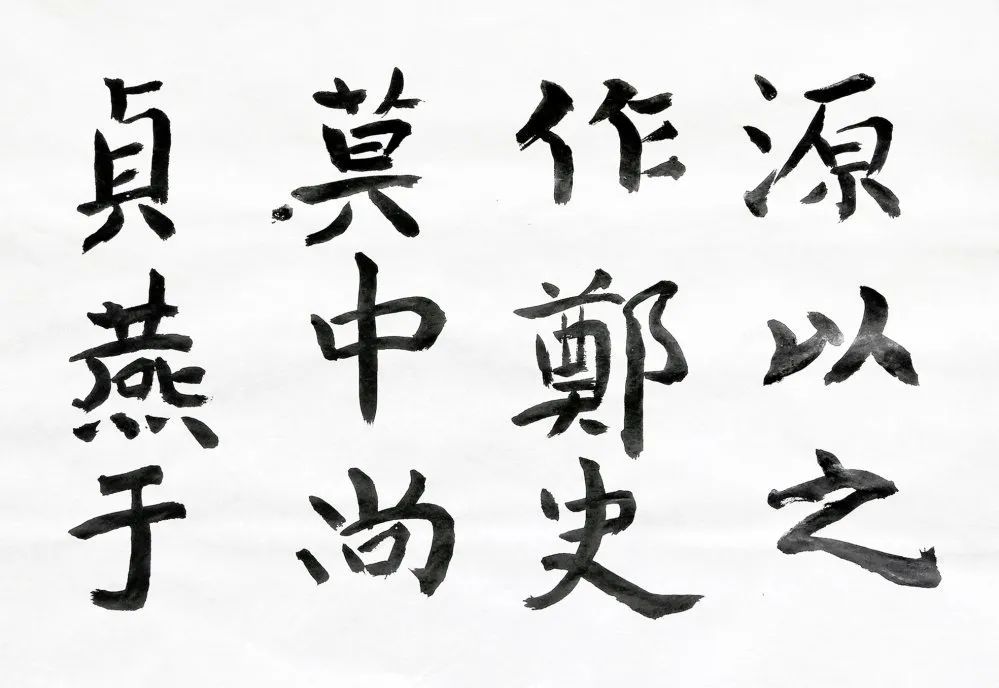 源以之
作鄭史
莫中尚
貞燕于